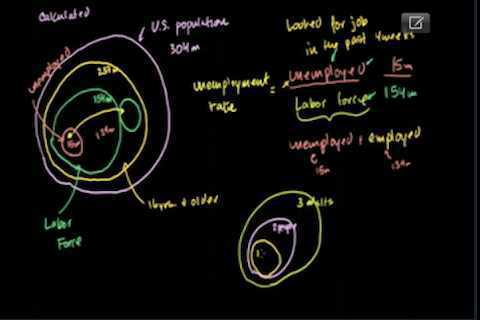 Calculated
U.S. population
304m
unemployed
237m
154m
139m
15m
Labor
Force
16yrs + older
Looked for job
in the past 4 weeks
unemployment
rate
=
unemployed
Labor force
15m
154m
unemployed + employed
15m
139m
3 adults
2
1